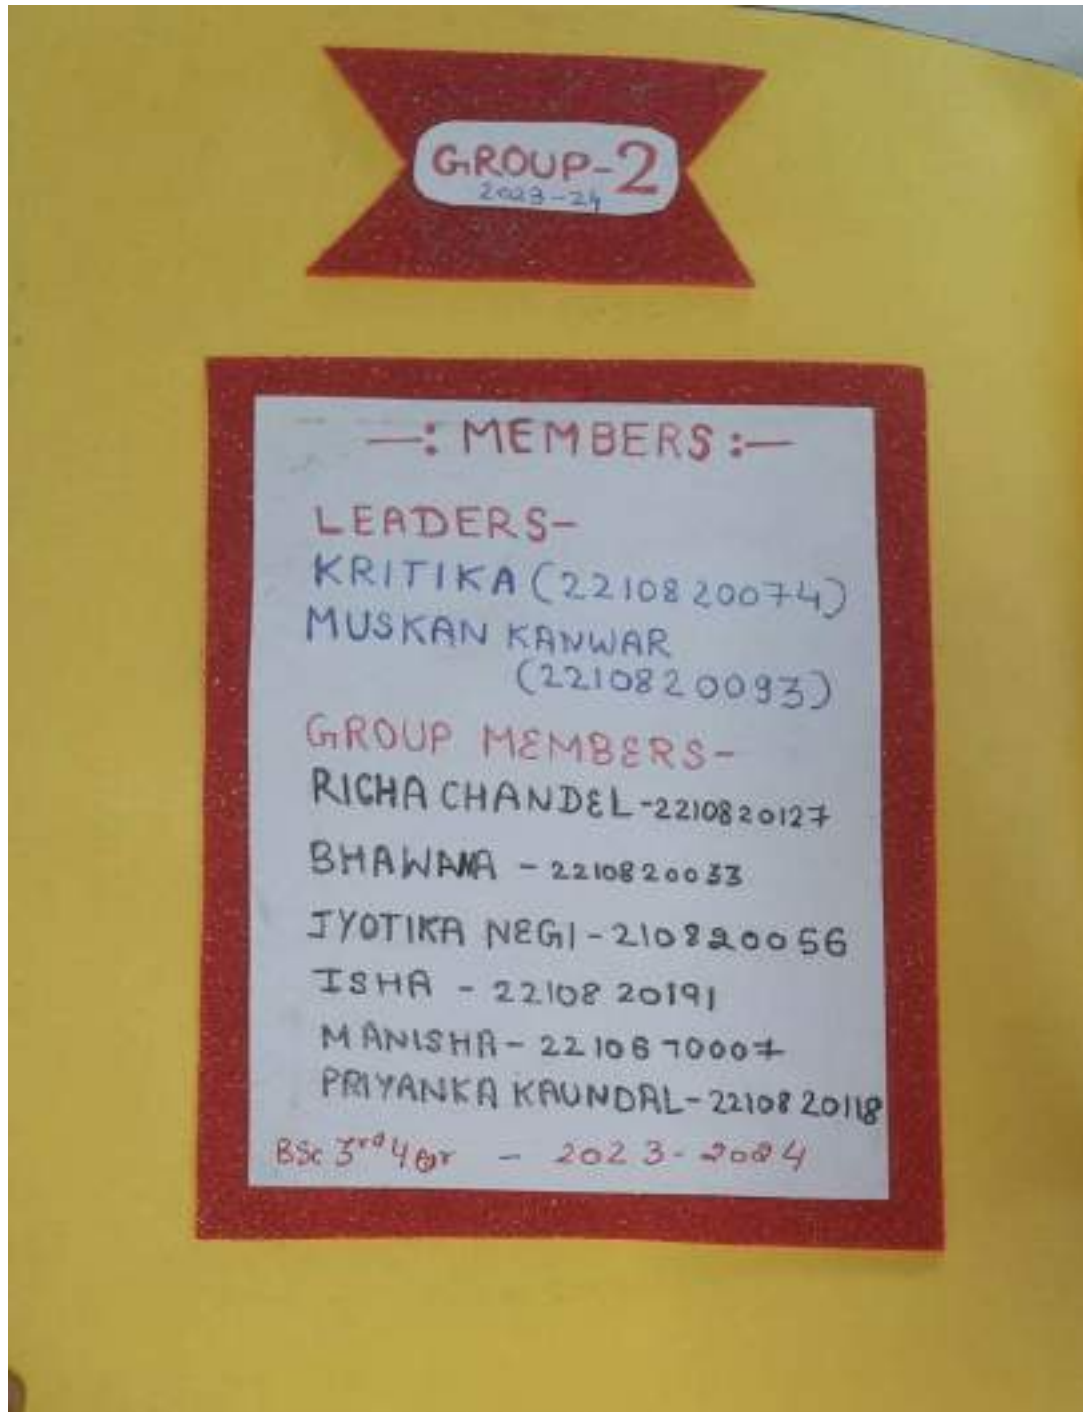 GROUP-2
2023-24
—: MEMBERS :—
LEADERS-
KRITIKA (2210820074)
MUSKAN KANWAR
(2210820093)
GROUP MEMBERS-
RICHA CHANDEL-2210820127
BHAWANA - 2210820033
JYOTIKA NEGI - 210820056
ISHA - 2210820191
MANISHA - 2210670007
PRIYANKA KAUNDAL-2210820118
BSc 3rd Year - 2023-2024